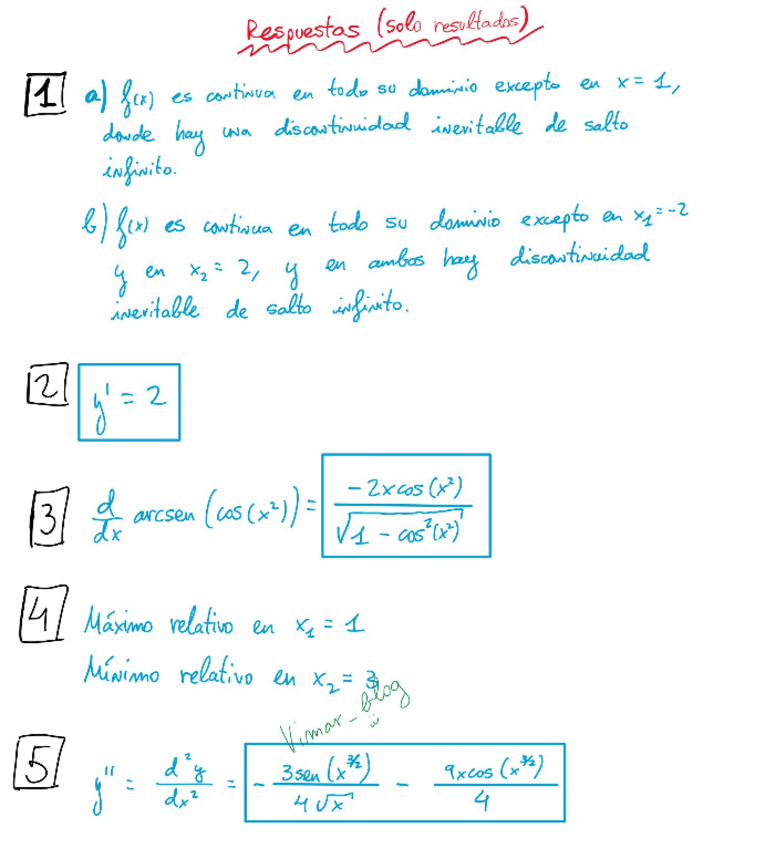 Respuestas (solo resultados)
1 a) f(x) es continua en todo su dominio excepto en x = 1,
donde hay una discontinuidad inevitable de salto
infinito.
b) f(x) es continua en todo su dominio excepto en x₁ = -2
y en x₂ = 2, y en ambos hay discontinuidad
inevitable de salto infinito.
2 y' = 2
3 d/dx arcsen (cos(x²)) = -2x cos(x²) / √(1 - cos²(x²))
4 Máximo relativo en x₁ = 1
Mínimo relativo en x₂ = 3
Vimar_blog
5 y'' = d²y/dx² = - 3 sen(x^(3/2)) / 4√x - 9x cos(x^(3/2)) / 4